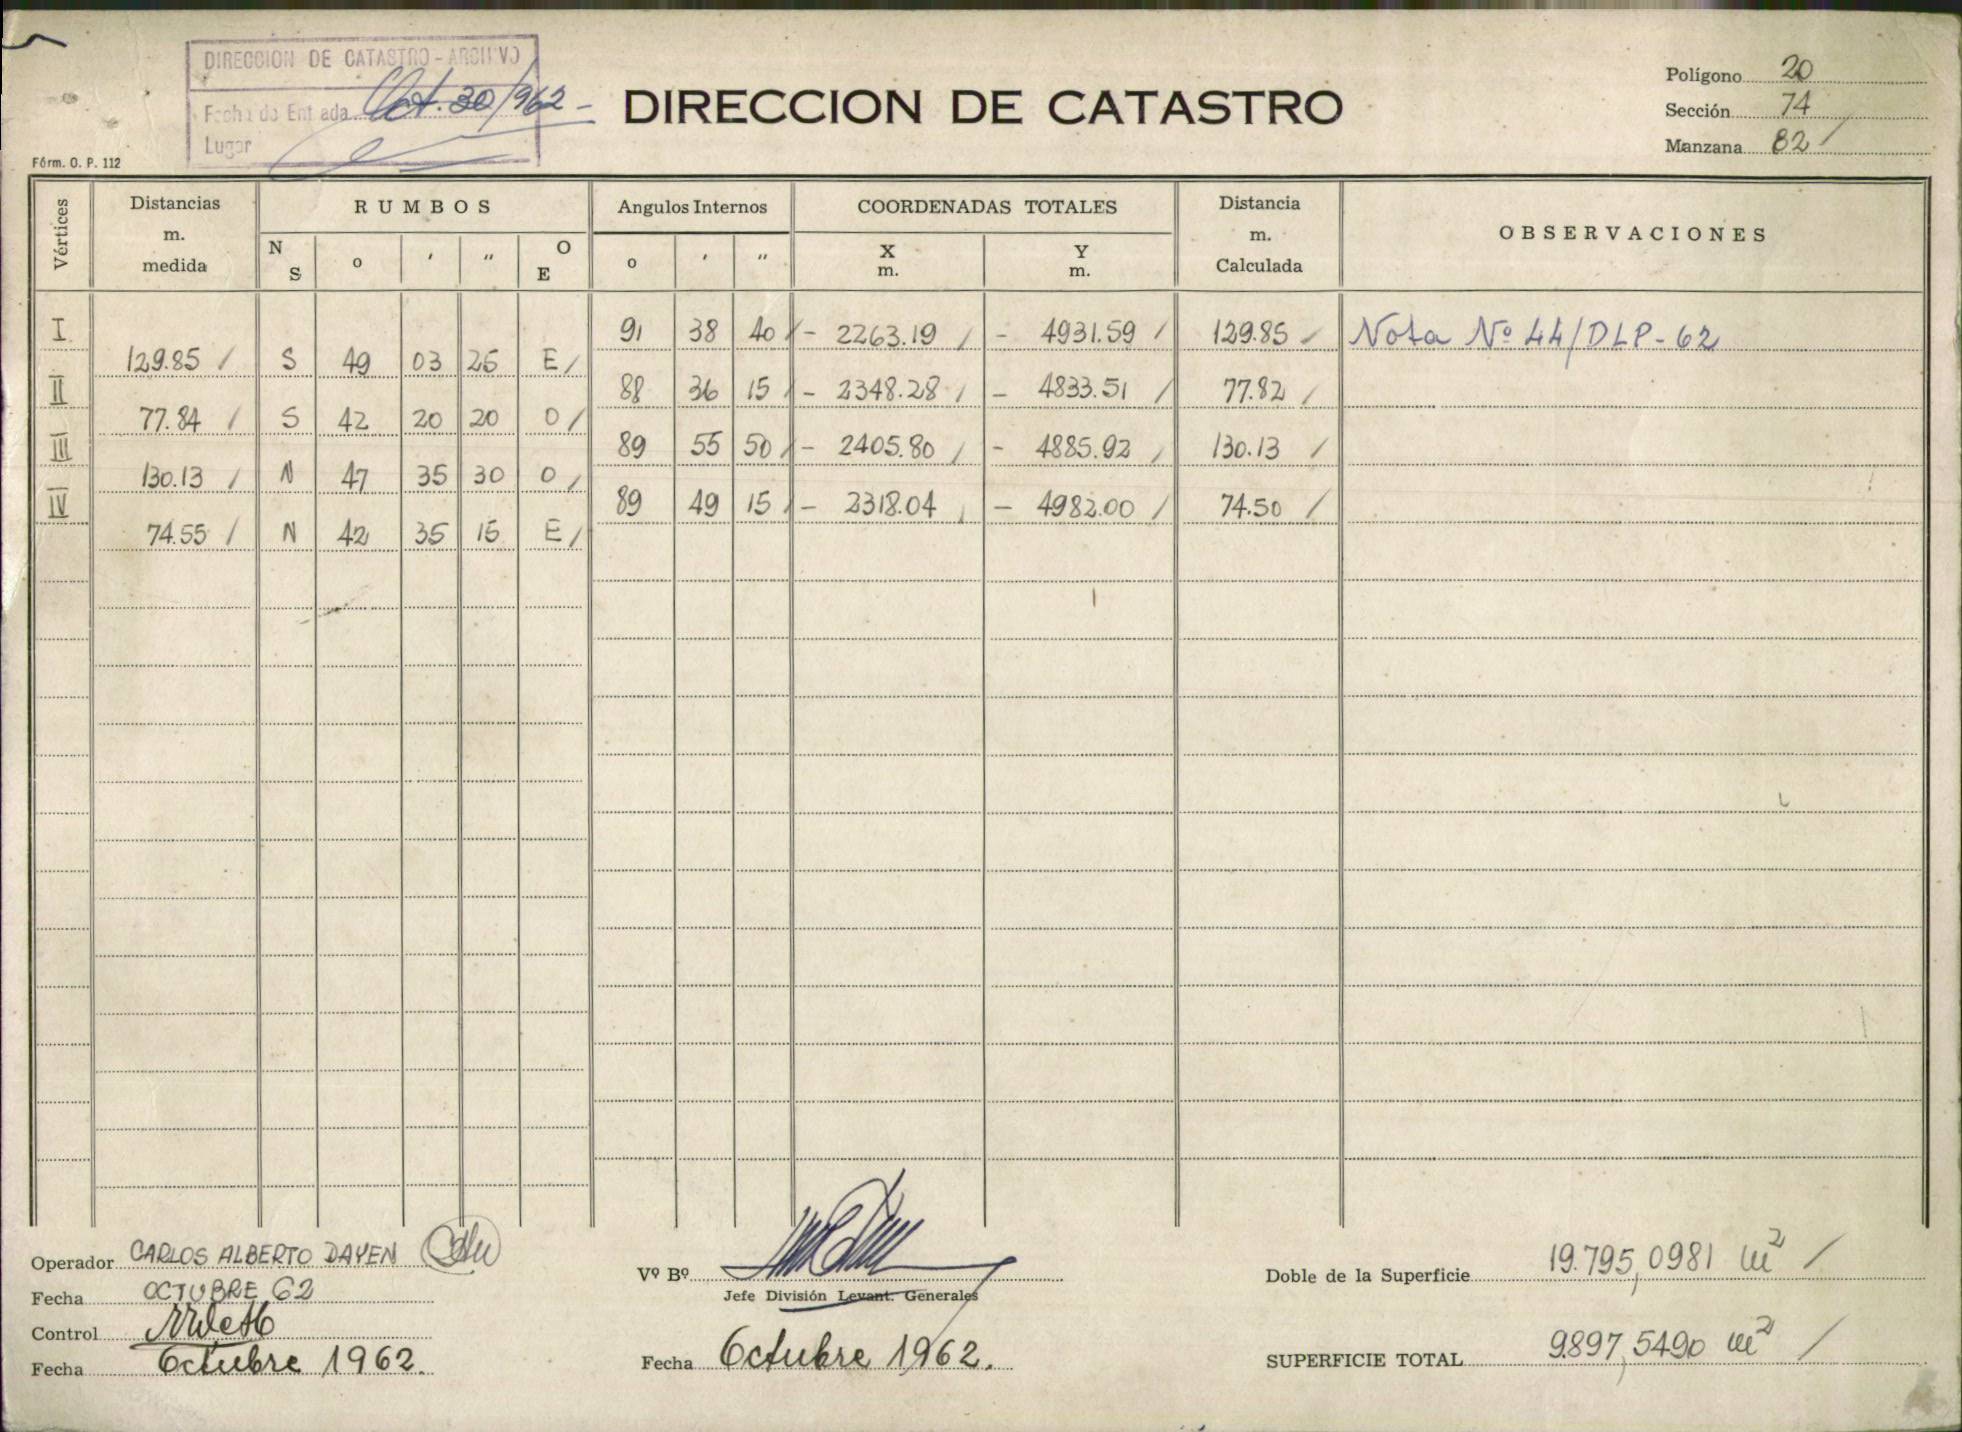 DIRECCION DE CATASTRO - ARCHIVO
Fecha de Entrada Oct. 30/962 -
Lugar
DIRECCION DE CATASTRO
Polígono 20
Sección 74
Manzana 82 /
Fórm. O. P. 112
Vértices Distancias m. medida RUMBOS N S o ′ ″ O E Angulos Internos o ′ ″ COORDENADAS TOTALES X m. Y m. Distancia m. Calculada OBSERVACIONES
I 91 38 40 / - 2263.19 / - 4931.59 / 129.85 / Nota Nº 44/DLP-62
129.85 / S 49 03 25 E /
II 88 36 15 / - 2348.28 / - 4833.51 / 77.82 /
77.84 / S 42 20 20 O /
III 89 55 50 / - 2405.80 / - 4885.92 / 130.13 /
130.13 / N 47 35 30 O /
IV 89 49 15 / - 2318.04 / - 4982.00 / 74.50 /
74.55 / N 42 35 15 E /
Operador CARLOS ALBERTO DAYEN
Fecha OCTUBRE 62
Control
Fecha Octubre 1962.
Vº Bº
Jefe División Levant. Generales
Fecha Octubre 1962.
Doble de la Superficie 19.795,0981 m² /
SUPERFICIE TOTAL 9897,5490 m² /